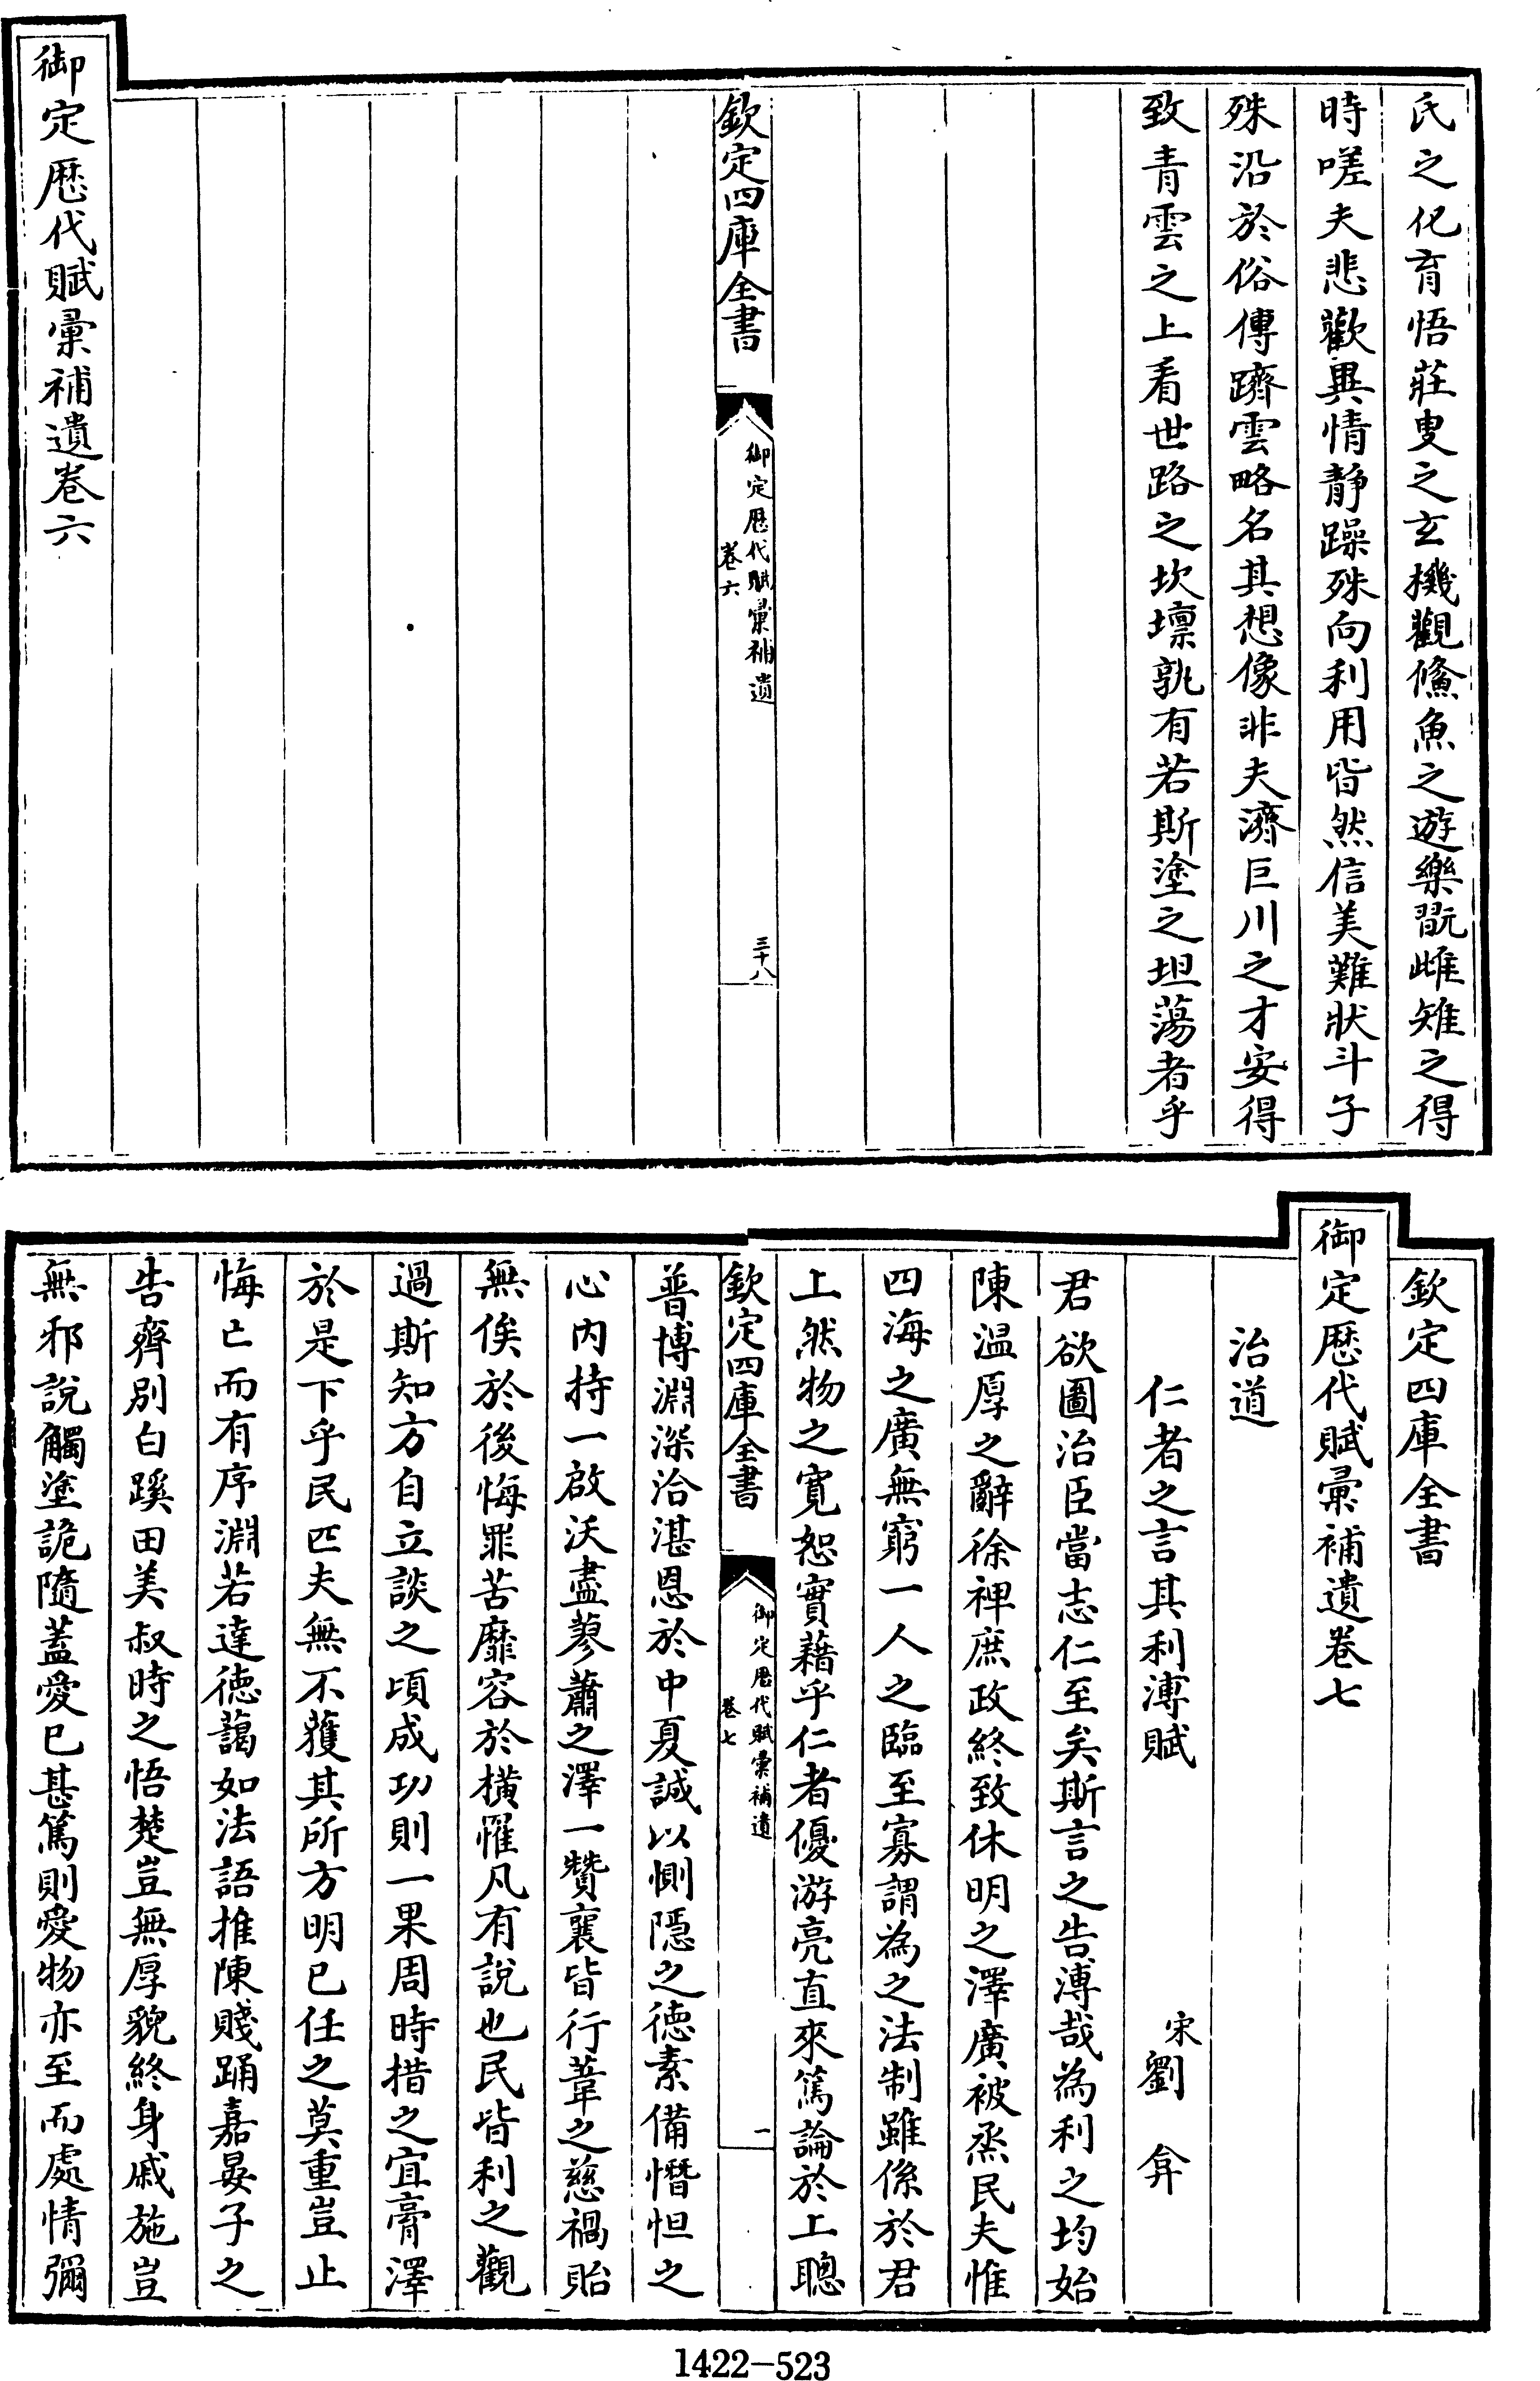 氏之化育悟莊叟之玄機觀鯈魚之遊樂翫雌雉之得
時嗟夫悲歡異情静躁殊向利用皆然信美難狀斗子
殊沿於俗傳躋雲略名其想像非夫濟巨川之才安得
致青雲之上看世路之坎壈孰有若斯塗之坦蕩者乎
欽定四庫全書
御定歷代賦彙補遺
卷六
三十八
御定歷代賦彙補遺卷六
欽定四庫全書
御定歷代賦彙補遺卷七
治道
仁者之言其利溥賦
宋劉弇
君欲圖治臣當志仁至矣斯言之告溥哉為利之均始
陳温厚之辭徐裨庶政終致休明之澤廣被烝民夫惟
四海之廣無窮一人之臨至寡謂為之法制雖係於君
上然物之寛恕實藉乎仁者優游亮直來篤論於上聰
欽定四庫全書
御定歷代賦彙補遺
卷七
一
普博淵深洽湛恩於中夏誠以惻隱之徳素備憯怛之
心内持一啟沃盡蓼蕭之澤一贊襄皆行葦之慈禍貽
無俟於後悔罪苦靡容於橫罹凡有說也民皆利之觀
過斯知方自立談之頃成功則一果周時措之宜膏澤
於是下乎民匹夫無不獲其所方明已任之莫重豈止
悔亡而有序淵若達徳藹如法語推陳賤踊嘉晏子之
告齊别白蹊田美叔時之悟楚豈無厚貌終身戚施豈
無邪說觸塗詭隨蓋愛已甚篤則愛物亦至而處情彌
1422-523